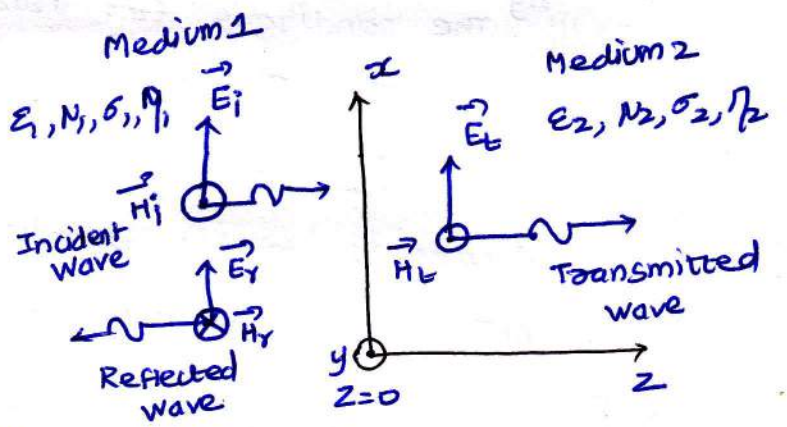 Medium 1
ε₁, μ₁, σ₁, η₁
E⃗i
H⃗i
Incident
wave
E⃗r
H⃗r
Reflected
wave
x
y
z=0
z
Medium 2
ε₂, μ₂, σ₂, η₂
E⃗t
H⃗t
Transmitted
wave